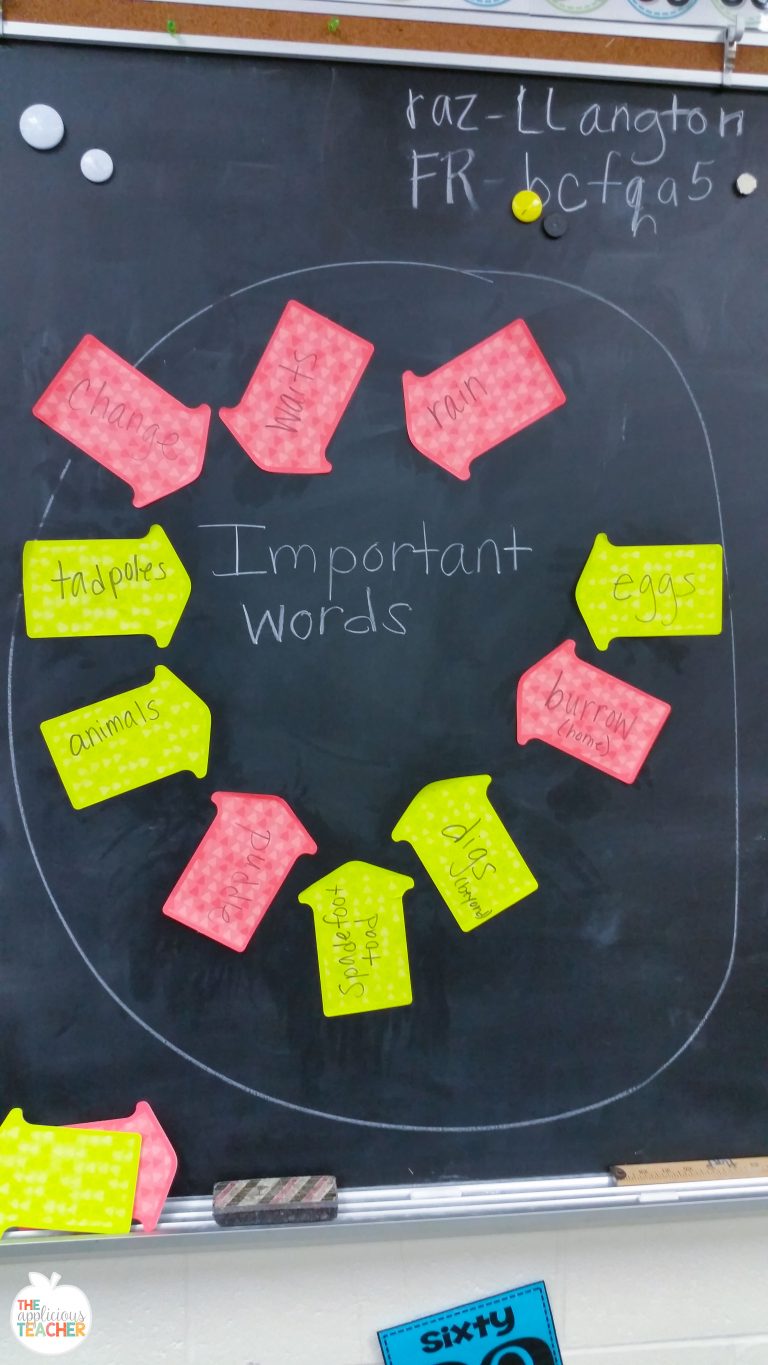 raz-LLangton
FR-bcfgha5
change
waits
rain
Important
words
tadpoles
eggs
animals
burrow
(home)
puddle
digs
spadefoot
toad
THE
applicious
TEACHER
sixty